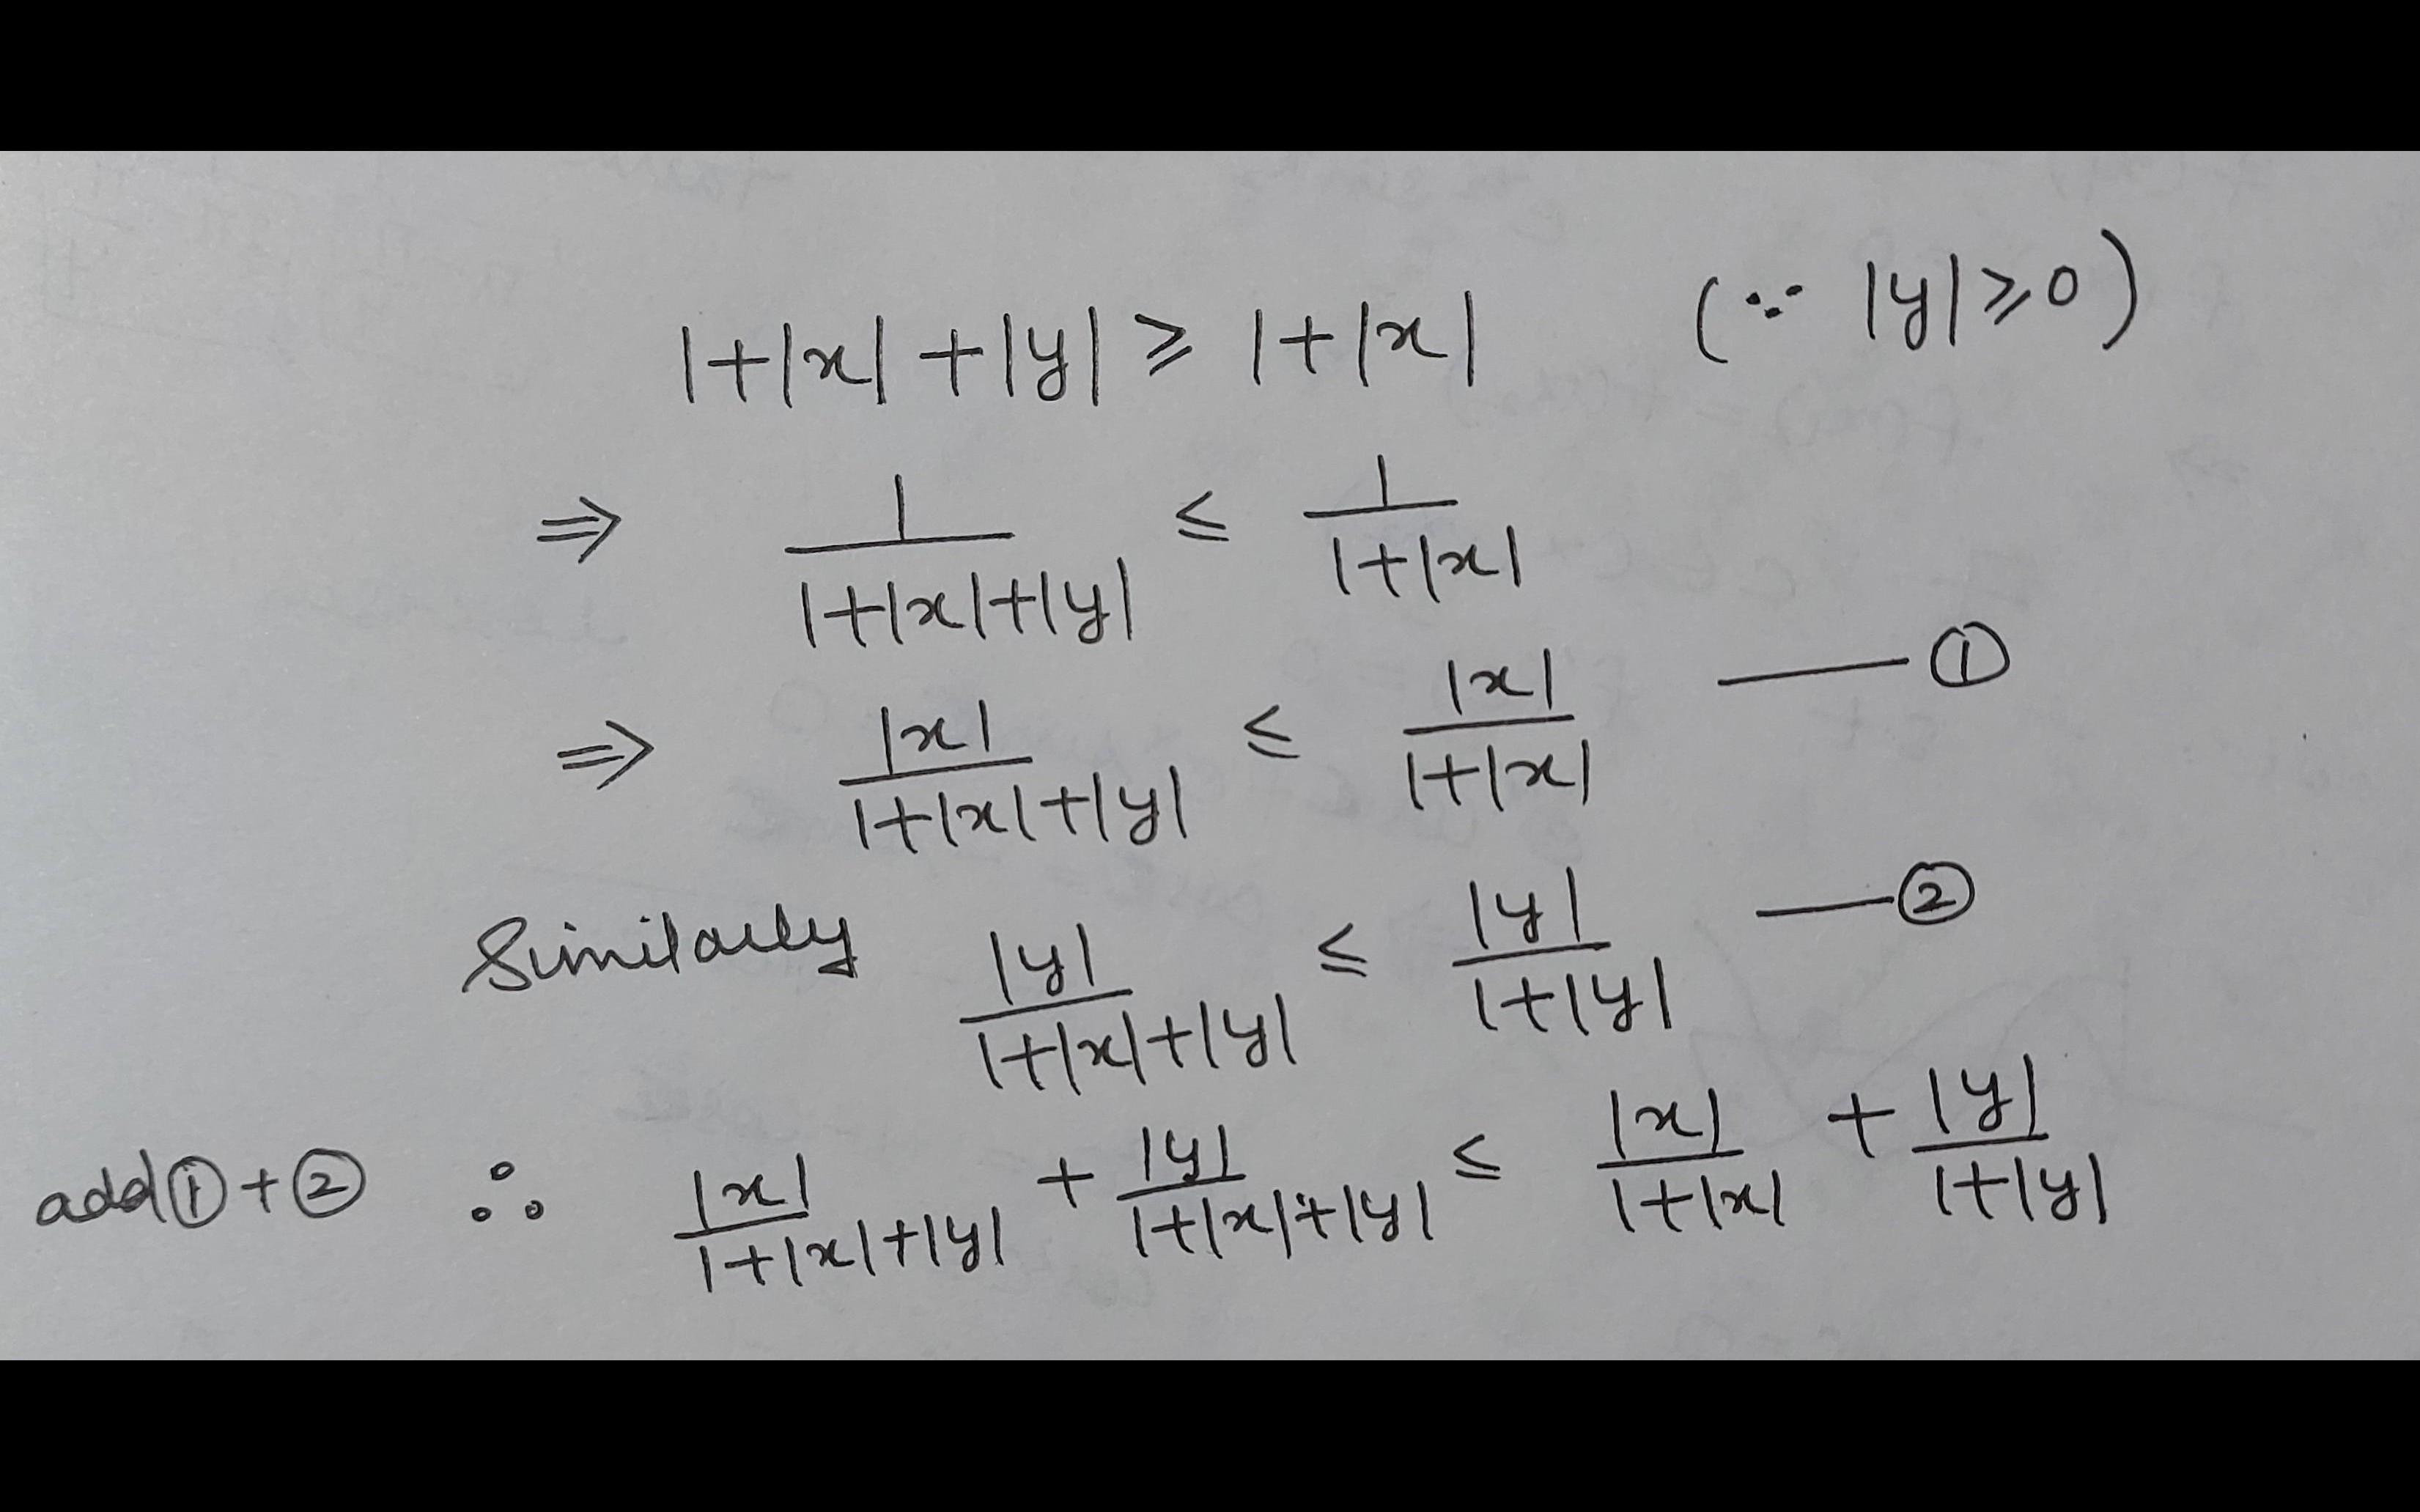 1+|x|+|y| ⩾ 1+|x| (∵ |y|⩾0)
⇒ 1/(1+|x|+|y|) ≤ 1/(1+|x|)
⇒ |x|/(1+|x|+|y|) ≤ |x|/(1+|x|) —— ①
Similarly |y|/(1+|x|+|y|) ≤ |y|/(1+|y|) —— ②
add ① + ② ∴ |x|/(1+|x|+|y|) + |y|/(1+|x|+|y|) ≤ |x|/(1+|x|) + |y|/(1+|y|)